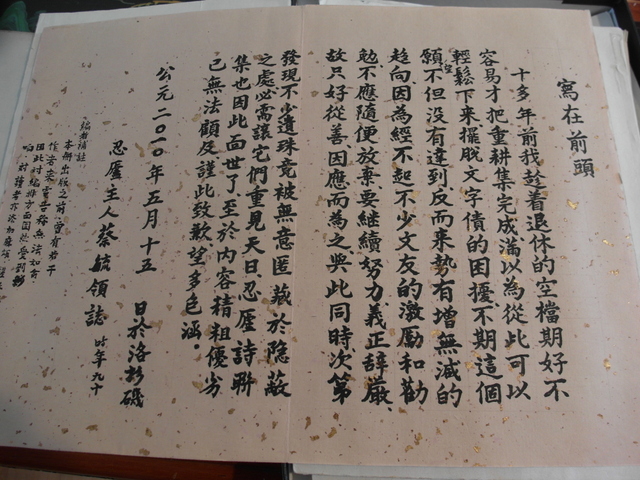 寫在前頭
十多年前我趁着退休的空檔期好不
容易才把重耕集完成滿以為從此可以
輕鬆下來擺脫文字債的困擾不期這個
願望不但沒有達到反而來勢有增無減的
趋向因為經不起不少文友的激勵和勸
勉不應隨便放棄要繼續努力義正辞嚴、
故只好從善因應而為之與此同時次第
發現不少遺珠竟被無意匿藏於隐蔽
之處必需讓它們重見天日忍廬詩聯
集也因此面世了至於内容精粗優劣
已無法顧及謹此致歉望多包涵。
公元二〇二〇年五月十五 日於洛杉磯
忍廬主人蔡毓領誌 时年九十
編者補註
本冊出版之前曾有若干
作者來電
因此对編排方面因然受到影
响对讀者